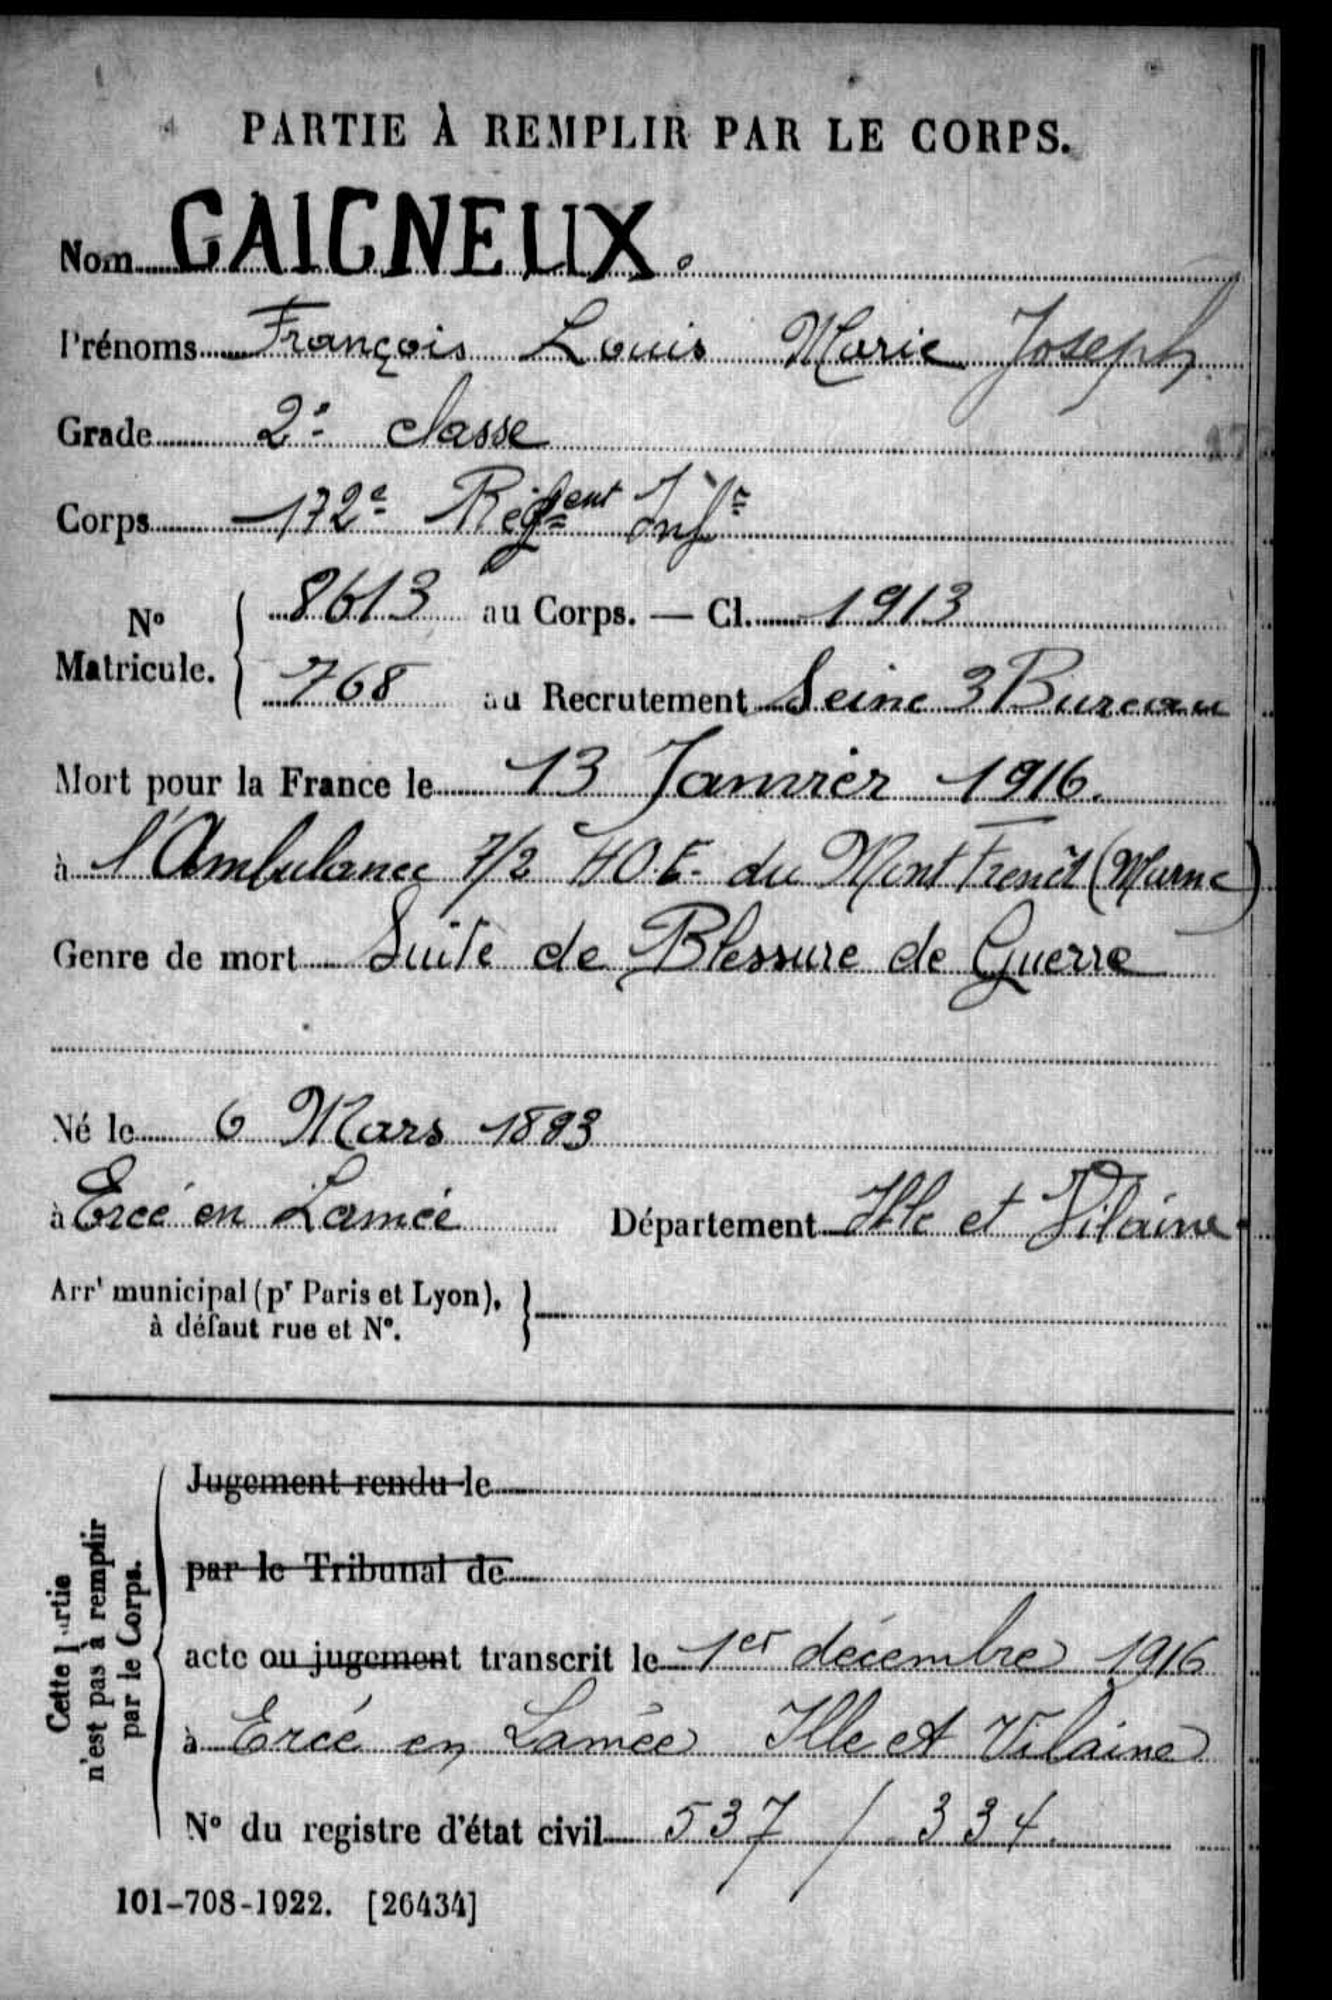 PARTIE À REMPLIR PAR LE CORPS.
Nom GAIGNEUX.
Prénoms François Louis Marie Joseph
Grade 2e classe
Corps 172e Régent Infie
No Matricule. 8613 au Corps. — Cl. 1913
768 au Recrutement Seine 3 Bureau
Mort pour la France le 13 Janvier 1916.
à l'Ambulance 7/2 HOE. du Mont Frenêt (Marne)
Genre de mort Suite de Blessure de Guerre
Né le 6 Mars 1893
à Ercé en Lamée Département Ille et Vilaine
Arrt municipal (pr Paris et Lyon),
à défaut rue et No.
Cette partie
n'est pas à remplir
par le Corps.
Jugement rendu le
par le Tribunal de
acte ou jugement transcrit le 1er décembre 1916
à Ercé en Lamée Ille et Vilaine
No du registre d'état civil 537 / 334.
101-708-1922. [26434]